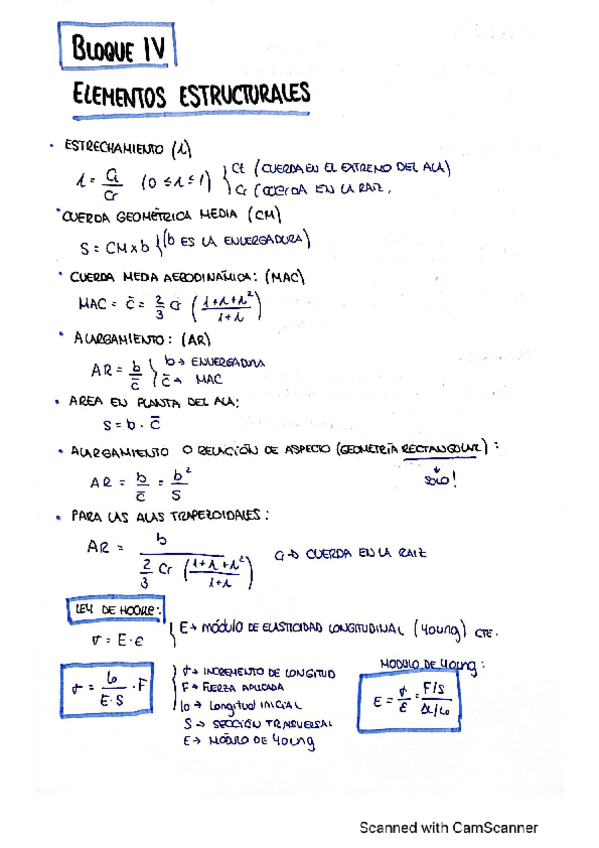 BLOQUE IV
ELEMENTOS ESTRUCTURALES
• ESTRECHAMIENTO (λ)
λ = Ct / Cr (0 ≤ λ ≤ 1) { Ct (CUERDA EN EL EXTREMO DEL ALA)
Cr (CUERDA EN LA RAIZ.
• CUERDA GEOMÉTRICA MEDIA (CM)
S = CM x b } (b ES LA ENVERGADURA)
• CUERDA MEDIA AERODINÁMICA: (MAC)
MAC = c̄ = 2/3 Cr ( (1+λ+λ²) / (1+λ) )
• ALARGAMIENTO: (AR)
AR = b / c̄ { b → ENVERGADURA
c̄ → MAC
• AREA EN PLANTA DEL ALA:
S = b · c̄
• ALARGAMIENTO O RELACIÓN DE ASPECTO (GEOMETRÍA RECTANGULAR):
AR = b / c̄ = b² / S
SOLO!
• PARA LAS ALAS TRAPEZOIDALES:
AR = b / ( 2/3 Cr ( (1+λ+λ²) / (1+λ) ) )
Cr → CUERDA EN LA RAIZ
LEY DE HOOKE:
σ = E·ε { E → MÓDULO DE ELASTICIDAD LONGITUDINAL (Young) CTE.
σ = lo / (E·S) · F
σ → INCREMENTO DE LONGITUD
F → FUERZA APLICADA
lo → Longitud INICIAL
S → SECCIÓN TRANSVERSAL
E → MÓDULO DE Young
MODULO DE Young:
E = σ / ε = (F/S) / (Δl/Lo)
Scanned with CamScanner